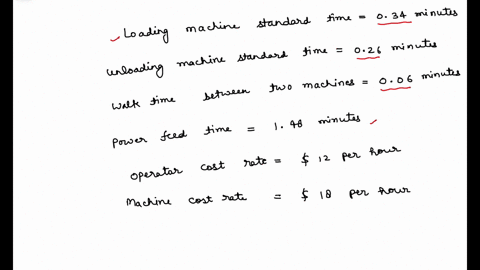 Loading machine standard time = 0.34 minutes
unloading machine standard time = 0.26 minutes
walk time between two machines = 0.06 minutes
power feed time = 1.48 minutes
operator cost rate = $ 12 per hour
Machine cost rate = $ 18 per hour